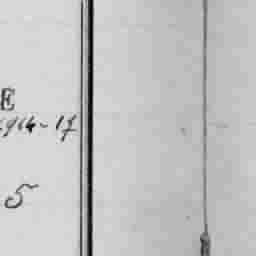 E
1914-17
5